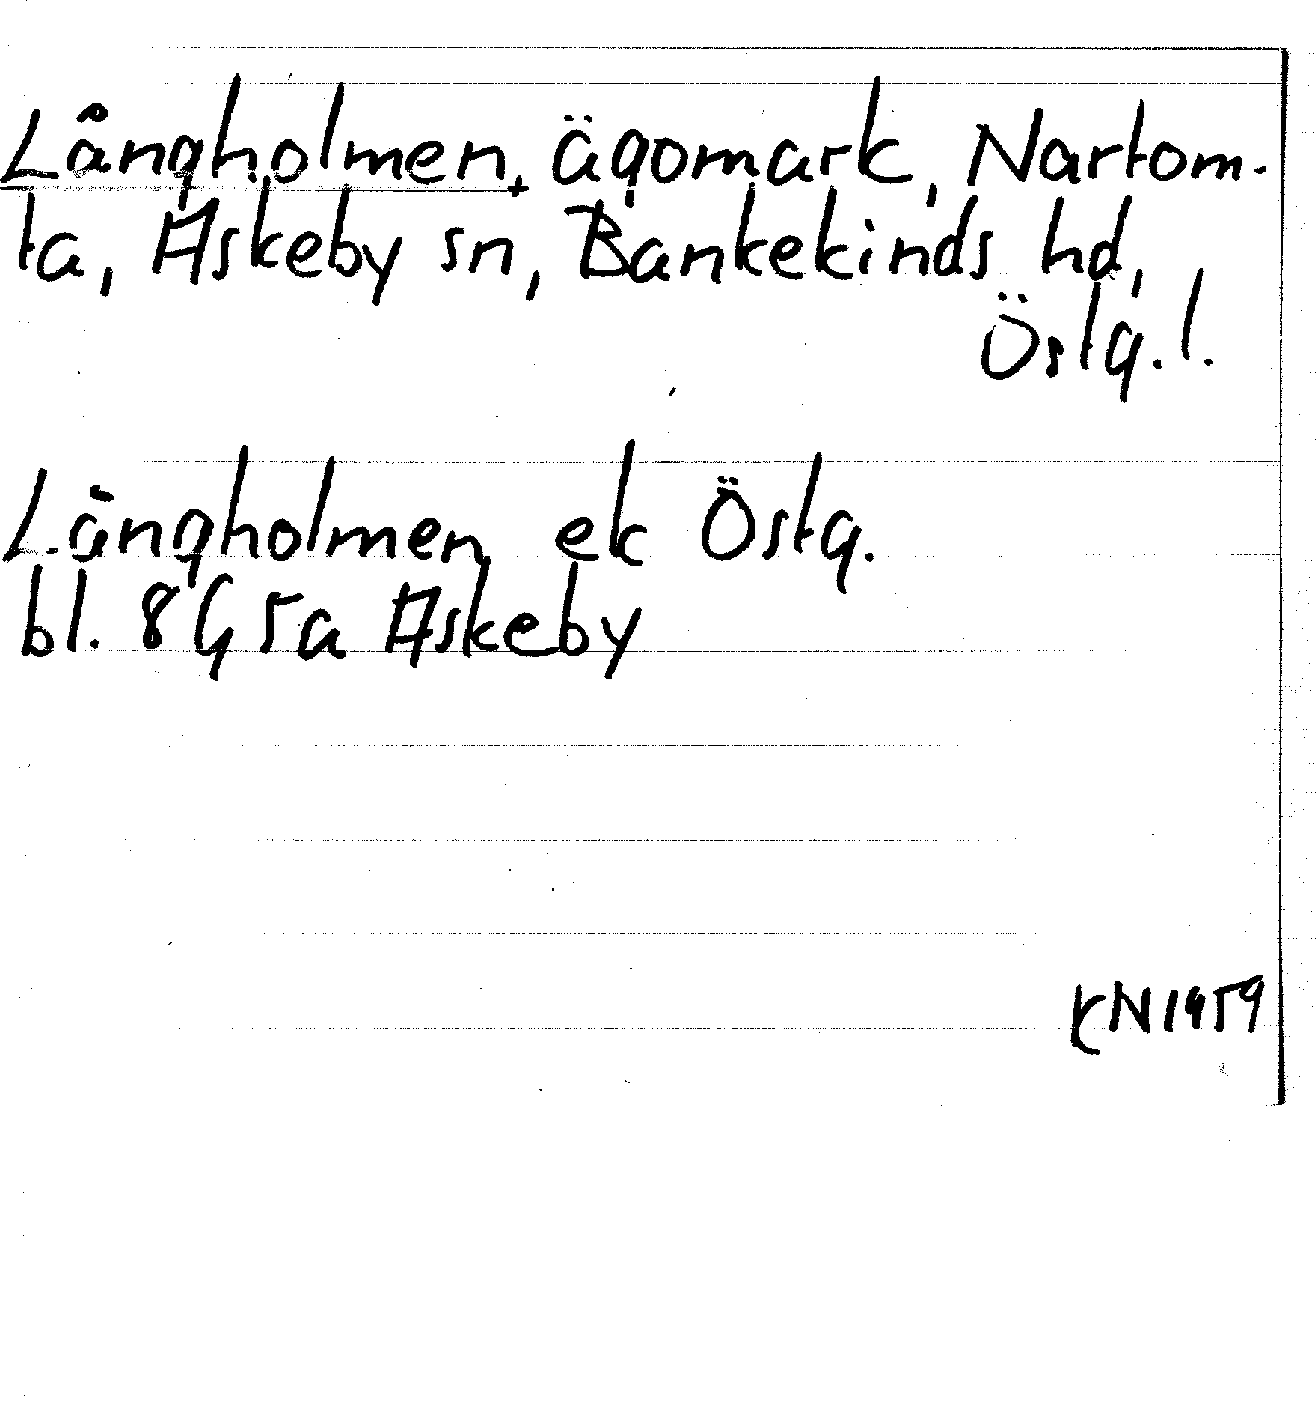 Långholmen, ägomark, Nartom-
ta, Askeby sn, Bankekinds hd,
Östg. l.
Långholmen ek Östg.
bl. 8G5a Askeby
KN1959